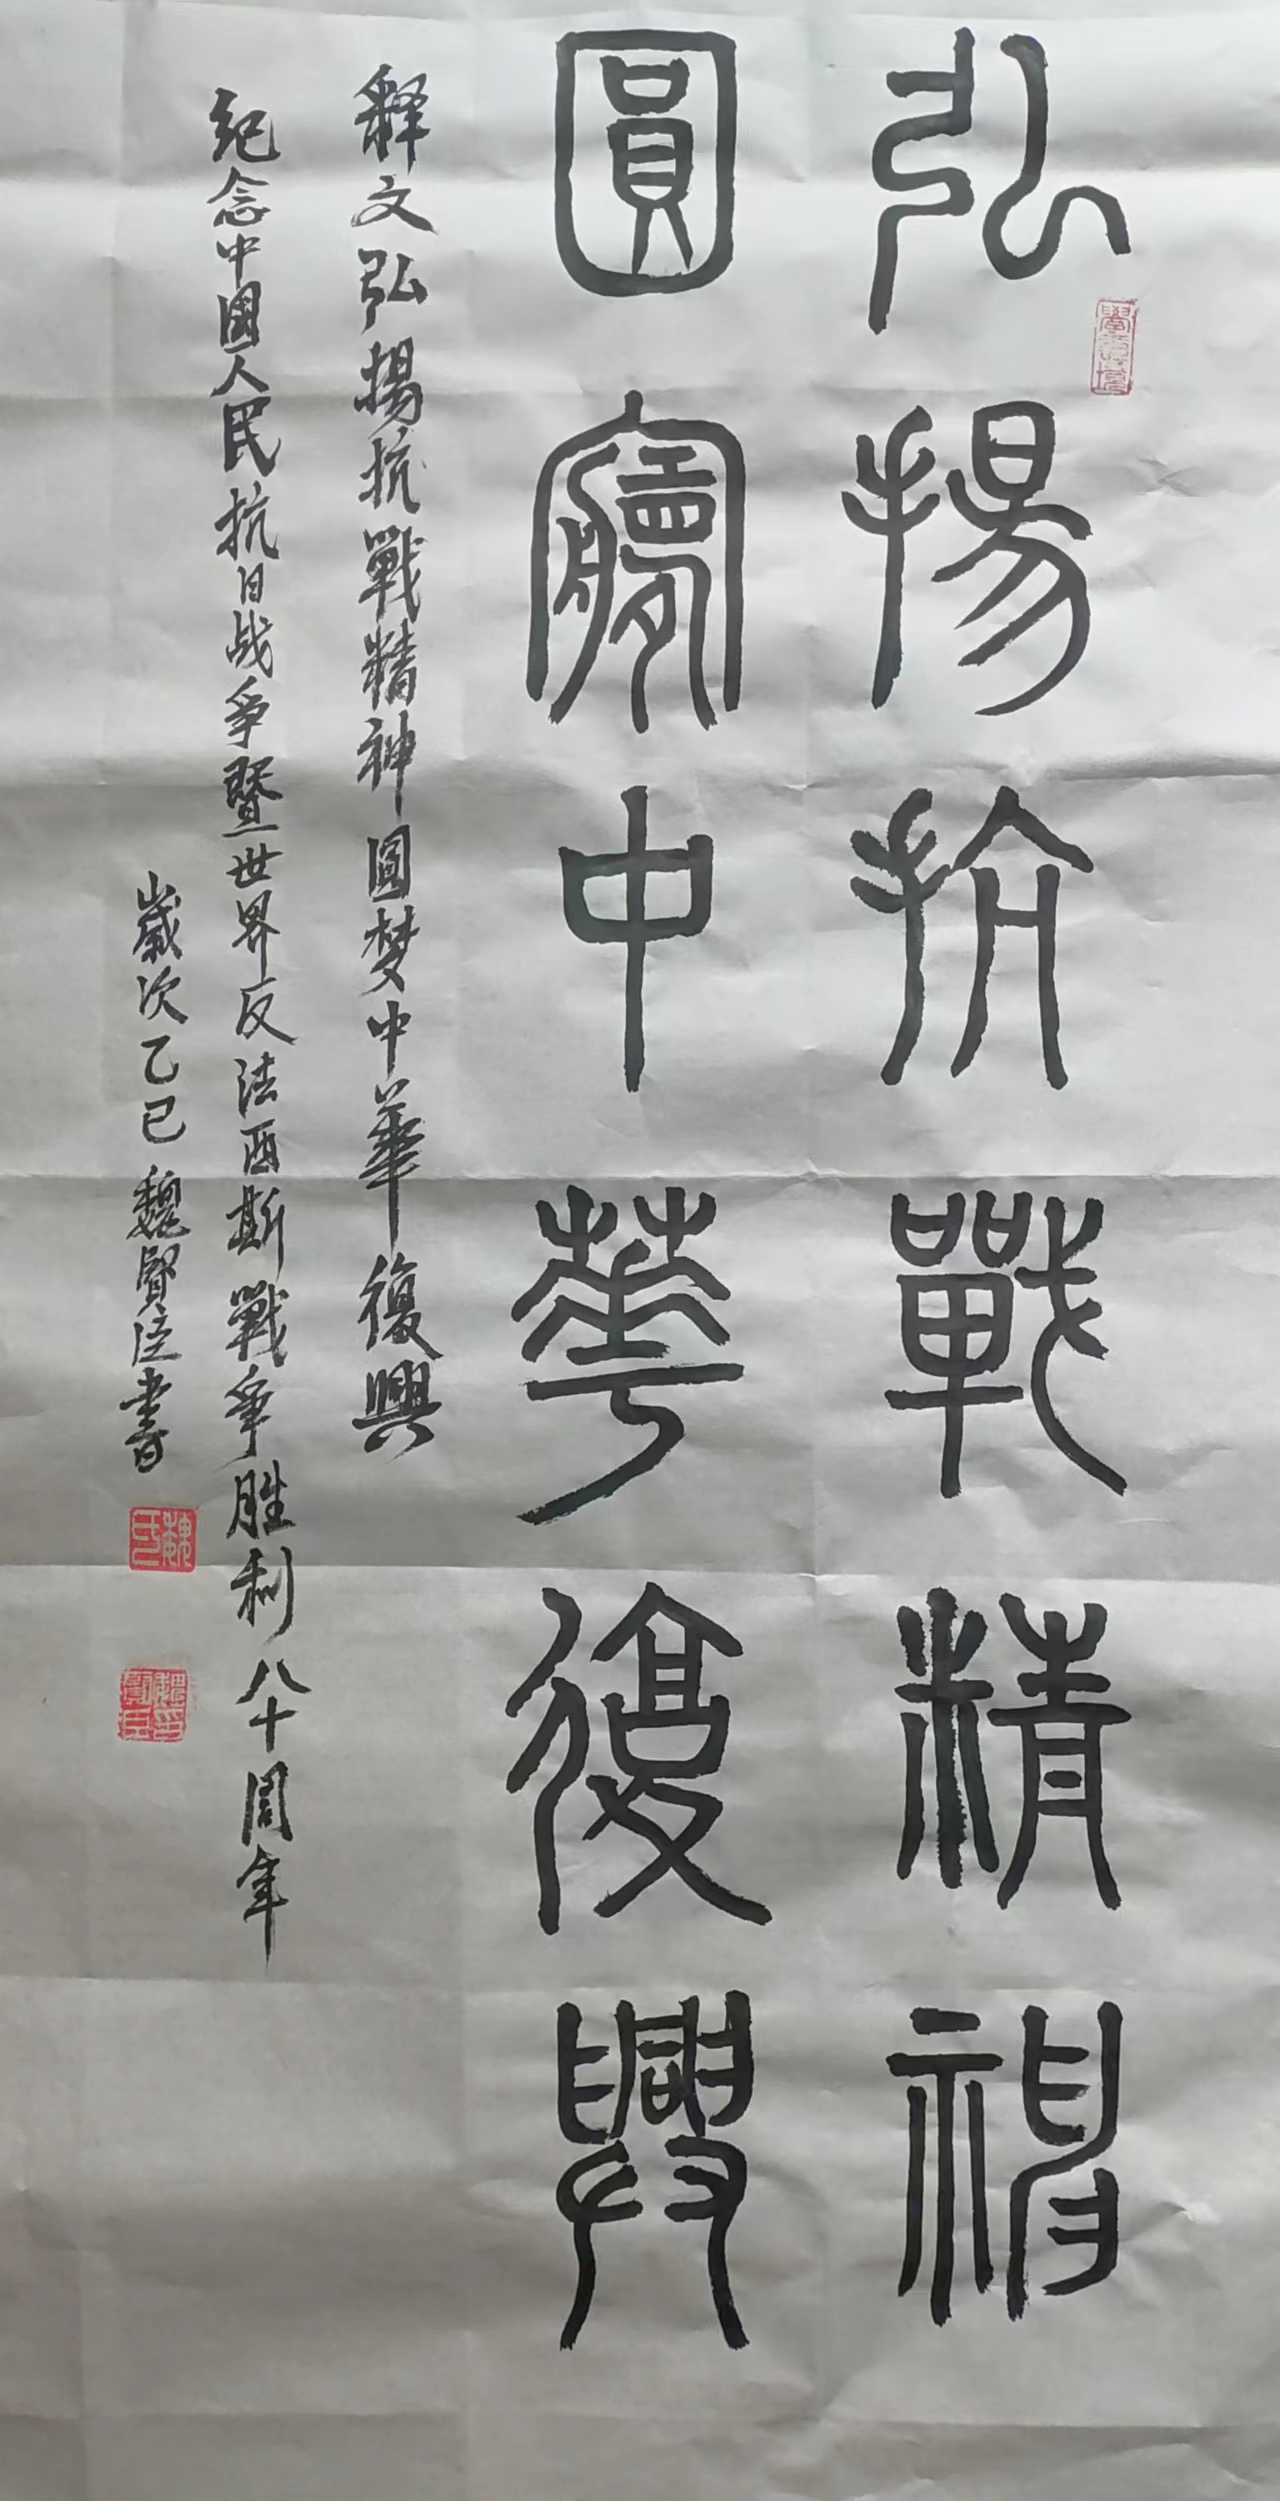 弘揚抗戰精神
圓夢中華復興
释文弘揚抗戰精神圓梦中華復興
纪念中國人民抗日战争暨世界反法西斯戰争胜利八十周年
歲次乙巳魏賢臣書
魏氏
魏賢臣印